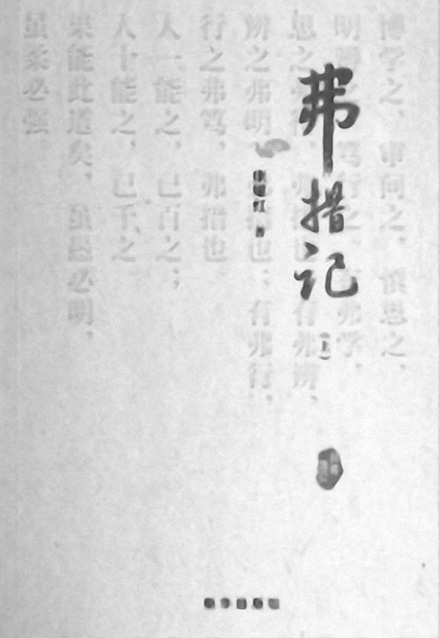 弗措记
(上)
红 著
博学之,审问之,慎思之,
明辨之,笃行之,有弗学,
思之弗得,弗措也;有弗辨,
辨之弗明,弗措也;有弗行,
行之弗笃,弗措也
人一能之,己百之;
人十能之,己千之
果能此道矣,虽愚必明,
虽柔必强。